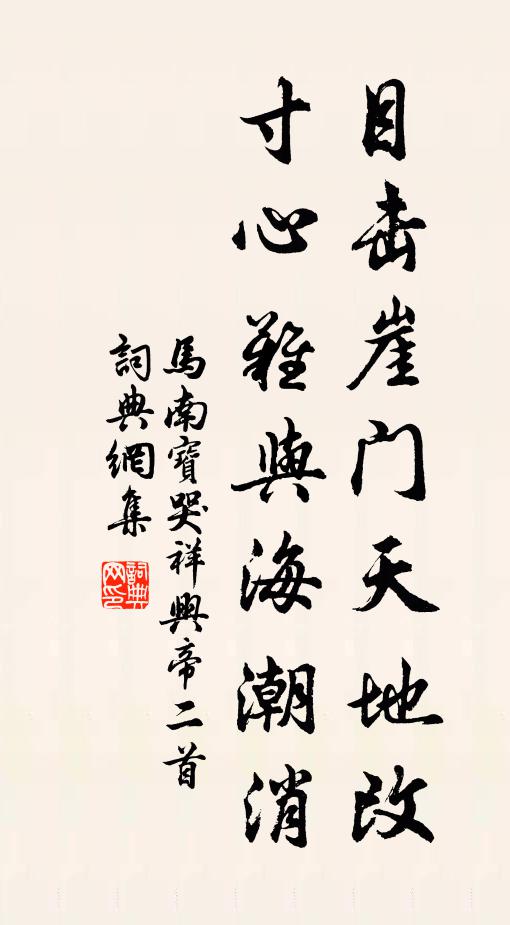 目击崖门天地改
寸心難與海潮消
馬南寶哭祥興帝二首
詞典網集
詞典网印